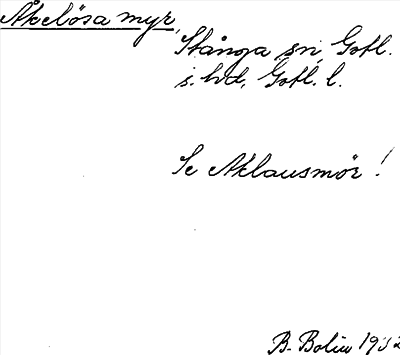 Åkelösa myr,
Stånga sn, Gotl.
s. hd, Gotl. l.
Se Aklausmör!
B. Bolin 1932